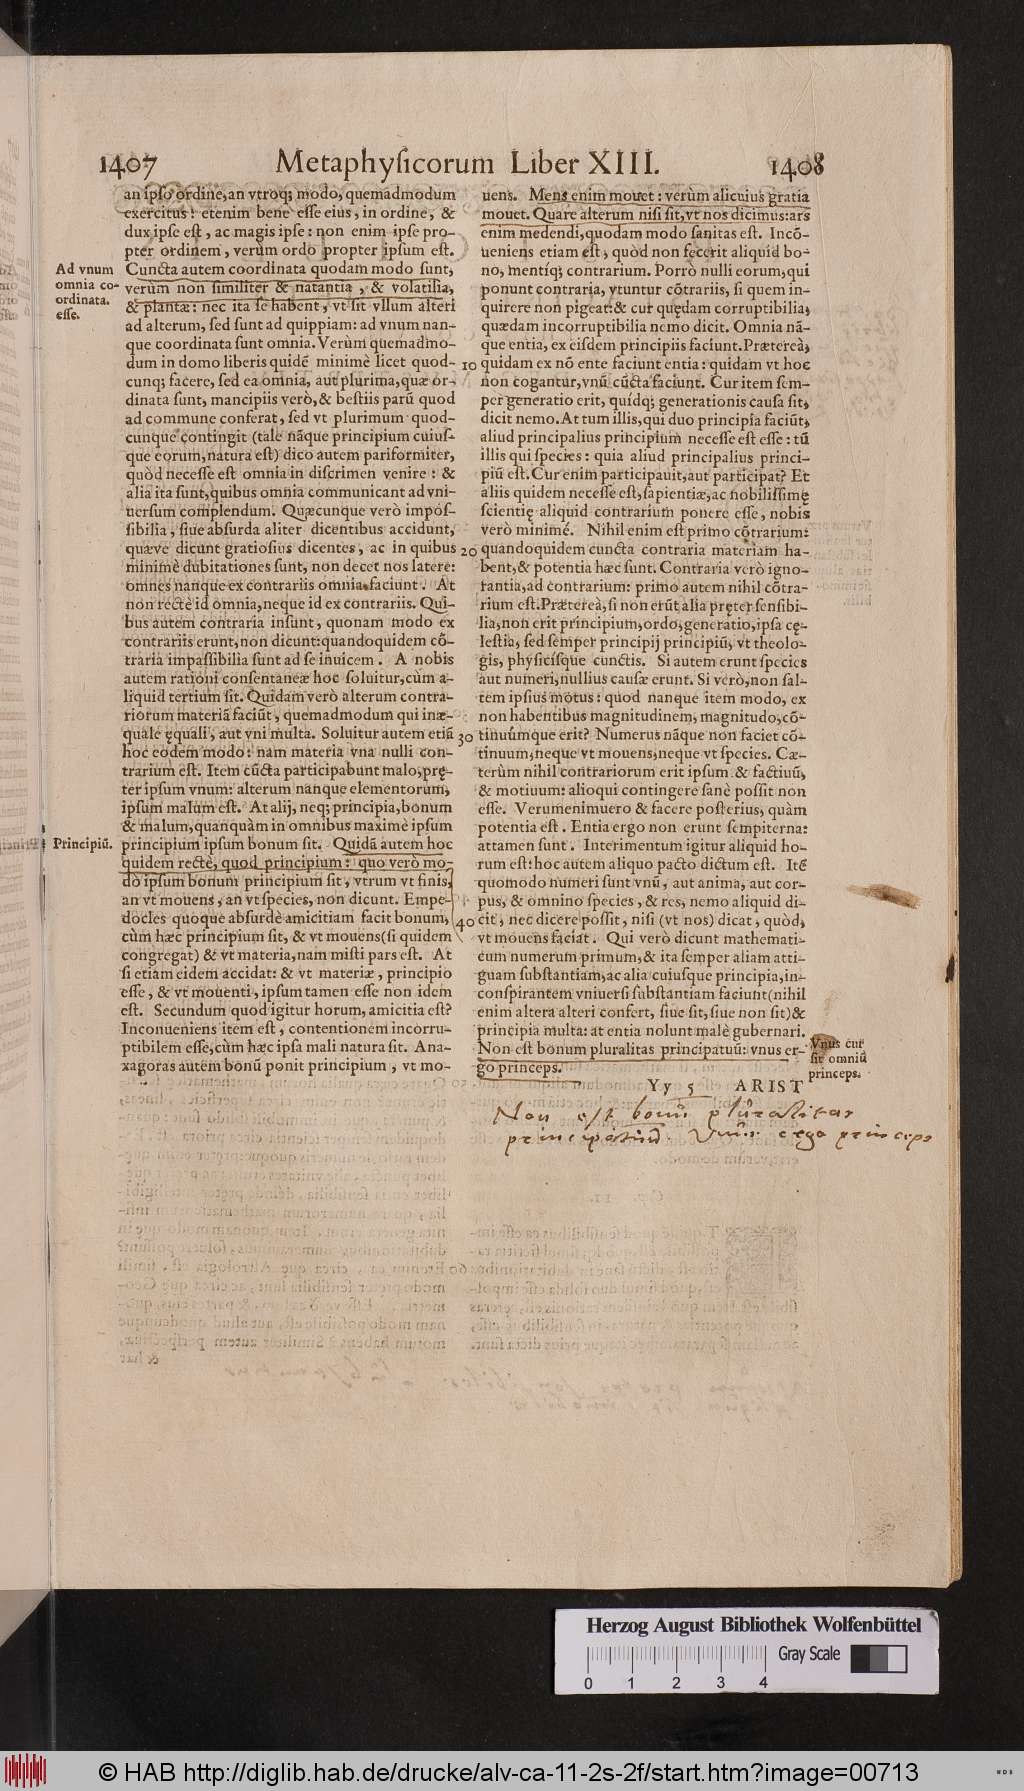 1407 Metaphyſicorum Liber XIII. 1408
an ipſo ordine, an vtroq; modo, quemadmodum
exercitus? etenim bene eſſe eius, in ordine, &
dux ipſe eſt, ac magis ipſe: non enim ipſe pro-
pter ordinem, verùm ordo propter ipſum eſt.
Cuncta autem coordinata quodam modo ſunt,
verùm non ſimiliter & natantia, & volatilia,
& plantæ: nec ita ſe habent, vt ſit vllum alteri
ad alterum, ſed ſunt ad quippiam: ad vnum nan-
que coordinata ſunt omnia. Verùm quemadmo-
dum in domo liberis quidē minimè licet quod-
cunq; facere, ſed ea omnia, aut plurima, quæ or-
dinata ſunt, mancipiis verò, & beſtiis parũ quod
ad commune conferat, ſed vt plurimum quod-
cunque contingit (tale nãque principium cuiuſ-
que eorum, natura eſt) dico autem pariformiter,
quòd neceſſe eſt omnia in diſcrimen venire: &
alia ita ſunt, quibus omnia communicant ad vni-
uerſum complendum. Quæcunque verò impoſ-
ſibilia, ſiue abſurda aliter dicentibus accidunt,
quæve dicunt gratioſius dicentes, ac in quibus
minimè dubitationes ſunt, non decet nos latere:
omnes nanque ex contrariis omnia faciunt. At
non rectè id omnia, neque id ex contrariis. Qui-
bus autem contraria inſunt, quonam modo ex
contrariis erunt, non dicunt: quandoquidem cõ-
traria impaſſibilia ſunt ad ſe inuicem. A nobis
autem rationi conſentaneæ hoc ſoluitur, cùm a-
liquid tertium ſit. Quidam verò alterum contra-
riorum materiã faciũt, quemadmodum qui inæ-
quale ęquali, aut vni multa. Soluitur autem etiã
hoc eodem modo: nam materia vna nulli con-
trarium eſt. Item cũcta participabunt malo, prę-
ter ipſum vnum: alterum nanque elementorum,
ipſum malum eſt. At alij, neq; principia, bonum
& malum, quanquàm in omnibus maximè ipſum
principium ipſum bonum ſit. Quidã autem hoc
quidem rectè, quod principium: quo verò mo-
do ipſum bonum principium ſit, vtrum vt finis,
an vt mouens, an vt ſpecies, non dicunt. Empe-
docles quoque abſurdè amicitiam facit bonum,
cùm hæc principium ſit, & vt mouens (ſi quidem
congregat) & vt materia, nam miſti pars eſt. At
ſi etiam eidem accidat: & vt materiæ, principio
eſſe, & vt mouenti, ipſum tamen eſſe non idem
eſt. Secundum quod igitur horum, amicitia eſt?
Inconueniens item eſt, contentionem incorru-
ptibilem eſſe, cùm hæc ipſa mali natura ſit. Ana-
xagoras autem bonũ ponit principium, vt mo-
Ad vnum
omnia co-
ordinata.
eſſe.
Principiũ.
10
20
30
40
uens. Mens enim mouet: verùm alicuius gratia
mouet. Quare alterum niſi ſit, vt nos dicimus: ars
enim medendi, quodam modo ſanitas eſt. Incõ-
ueniens etiam eſt, quòd non fecerit aliquid bo-
no, mentíq; contrarium. Porrò nulli eorum, qui
ponunt contraria, vtuntur cõtrariis, ſi quem in-
quirere non pigeat: & cur quędam corruptibilia,
quædam incorruptibilia nemo dicit. Omnia nã-
que entia, ex eiſdem principiis faciunt. Prætereà,
quidam ex nõ ente faciunt entia: quidam vt hoc
non cogantur, vnũ cũcta faciunt. Cur item ſem-
per generatio erit, quíſdq; generationis cauſa ſit,
dicit nemo. At tum illis, qui duo principia faciũt,
aliud principalius principium neceſſe eſt eſſe: tũ
illis qui ſpecies: quia aliud principalius princi-
piũ eſt. Cur enim participauit, aut participat? Et
aliis quidem neceſſe eſt, ſapientiæ, ac nobiliſſimę
ſcientię aliquid contrarium ponere eſſe, nobis
verò minimé. Nihil enim eſt primo cõtrarium:
quandoquidem cuncta contraria materiam ha-
bent, & potentia hæc ſunt. Contraria verò igno-
rantia, ad contrarium: primo autem nihil cõtra-
rium eſt. Prætereà, ſi non erũt alia pręter ſenſibi-
lia, non erit principium, ordo, generatio, ipſa cę-
leſtia, ſed ſemper principij principiũ, vt theolo-
gis, phyſiciſque cunctis. Si autem erunt ſpecies
aut numeri, nullius cauſæ erunt. Si verò, non ſal-
tem ipſius motus: quod nanque item modo, ex
non habentibus magnitudinem, magnitudo, cõ-
tinuúmque erit? Numerus nãque non faciet cõ-
tinuum, neque vt mouens, neque vt ſpecies. Cæ-
terùm nihil contrariorum erit ipſum & factiuũ,
& motiuum: alioqui contingere ſanè poſſit non
eſſe. Verumenimuero & facere poſterius, quàm
potentia eſt. Entia ergo non erunt ſempiterna:
attamen ſunt. Interimentum igitur aliquid ho-
rum eſt: hoc autem aliquo pacto dictum eſt. Itē
quomodo numeri ſunt vnũ, aut anima, aut cor-
pus, & omnino ſpecies, & res, nemo aliquid di-
cit, nec dicere poſſit, niſi (vt nos) dicat, quòd,
vt mouens faciat. Qui verò dicunt mathemati-
cum numerum primum, & ita ſemper aliam atti-
guam ſubſtantiam, ac alia cuiuſque principia, in-
conſpirantem vniuerſi ſubſtantiam faciunt (nihil
enim altera alteri confert, ſiue ſit, ſiue non ſit) &
principia multa: at entia nolunt malè gubernari.
Non eſt bonum pluralitas principatuũ: vnus er-
go princeps.
Vnus cur
ſit omniũ
princeps.
Yy 5 ARIST
Non est bonũ pluralitas
principatuũ. Vnus ergo princeps
Herzog August Bibliothek Wolfenbüttel
Gray Scale
0 1 2 3 4
© HAB http://diglib.hab.de/drucke/alv-ca-11-2s-2f/start.htm?image=00713